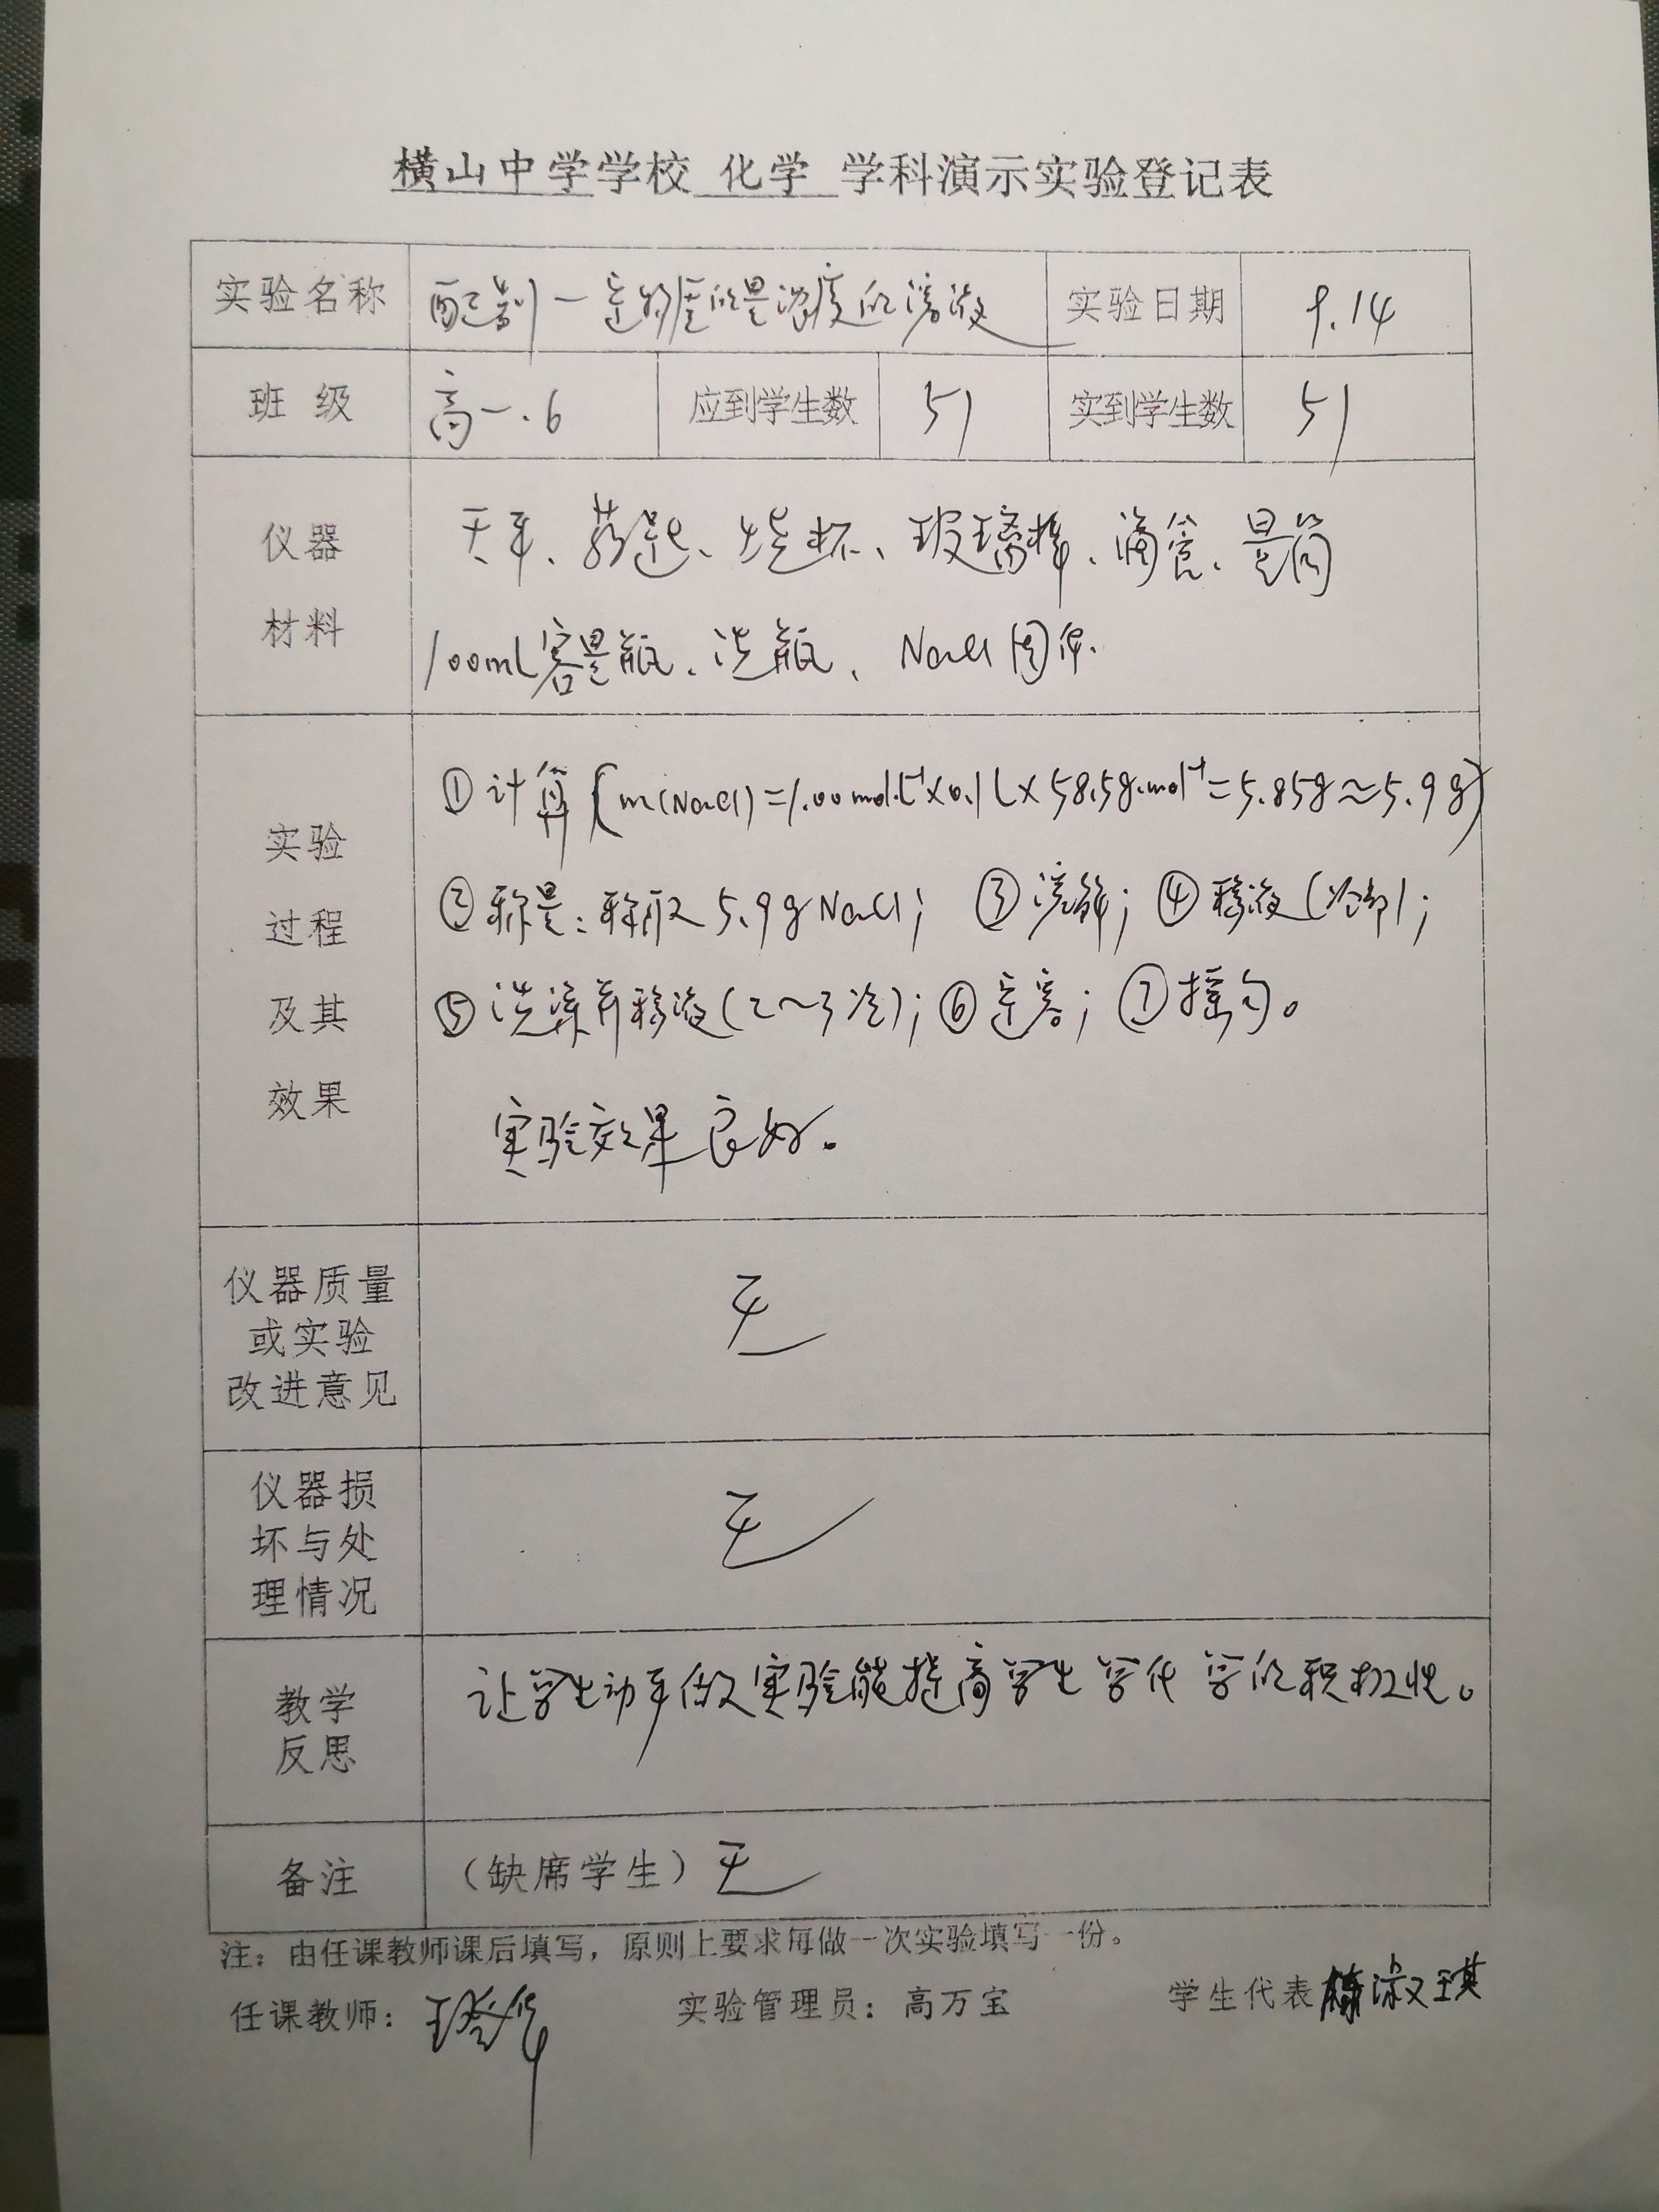 横山中学学校 化学 学科演示实验登记表
实验名称 配制一定物质的量浓度的溶液 实验日期 9.14
班 级 高一.6 应到学生数 51 实到学生数 51
仪器
材料
天平、药匙、烧杯、玻璃棒、滴管、量筒
100mL容量瓶、洗瓶、NaCl固体.
实验
过程
及其
效果
①计算(m(NaCl)=1.00mol·L⁻¹×0.1L×58.5g·mol⁻¹=5.85g≈5.9g)
②称量:称取5.9gNaCl; ③溶解; ④移液(冷却);
⑤洗涤并移液(2~3次); ⑥定容; ⑦摇匀。
实验效果良好。
仪器质量
或实验
改进意见
无
仪器损
坏与处
理情况
无
教学
反思
让学生动手做实验能提高学生学化学的积极性。
备注 (缺席学生)无
注:由任课教师课后填写,原则上要求每做一次实验填写一份。
任课教师: 实验管理员:高万宝 学生代表 淑琪